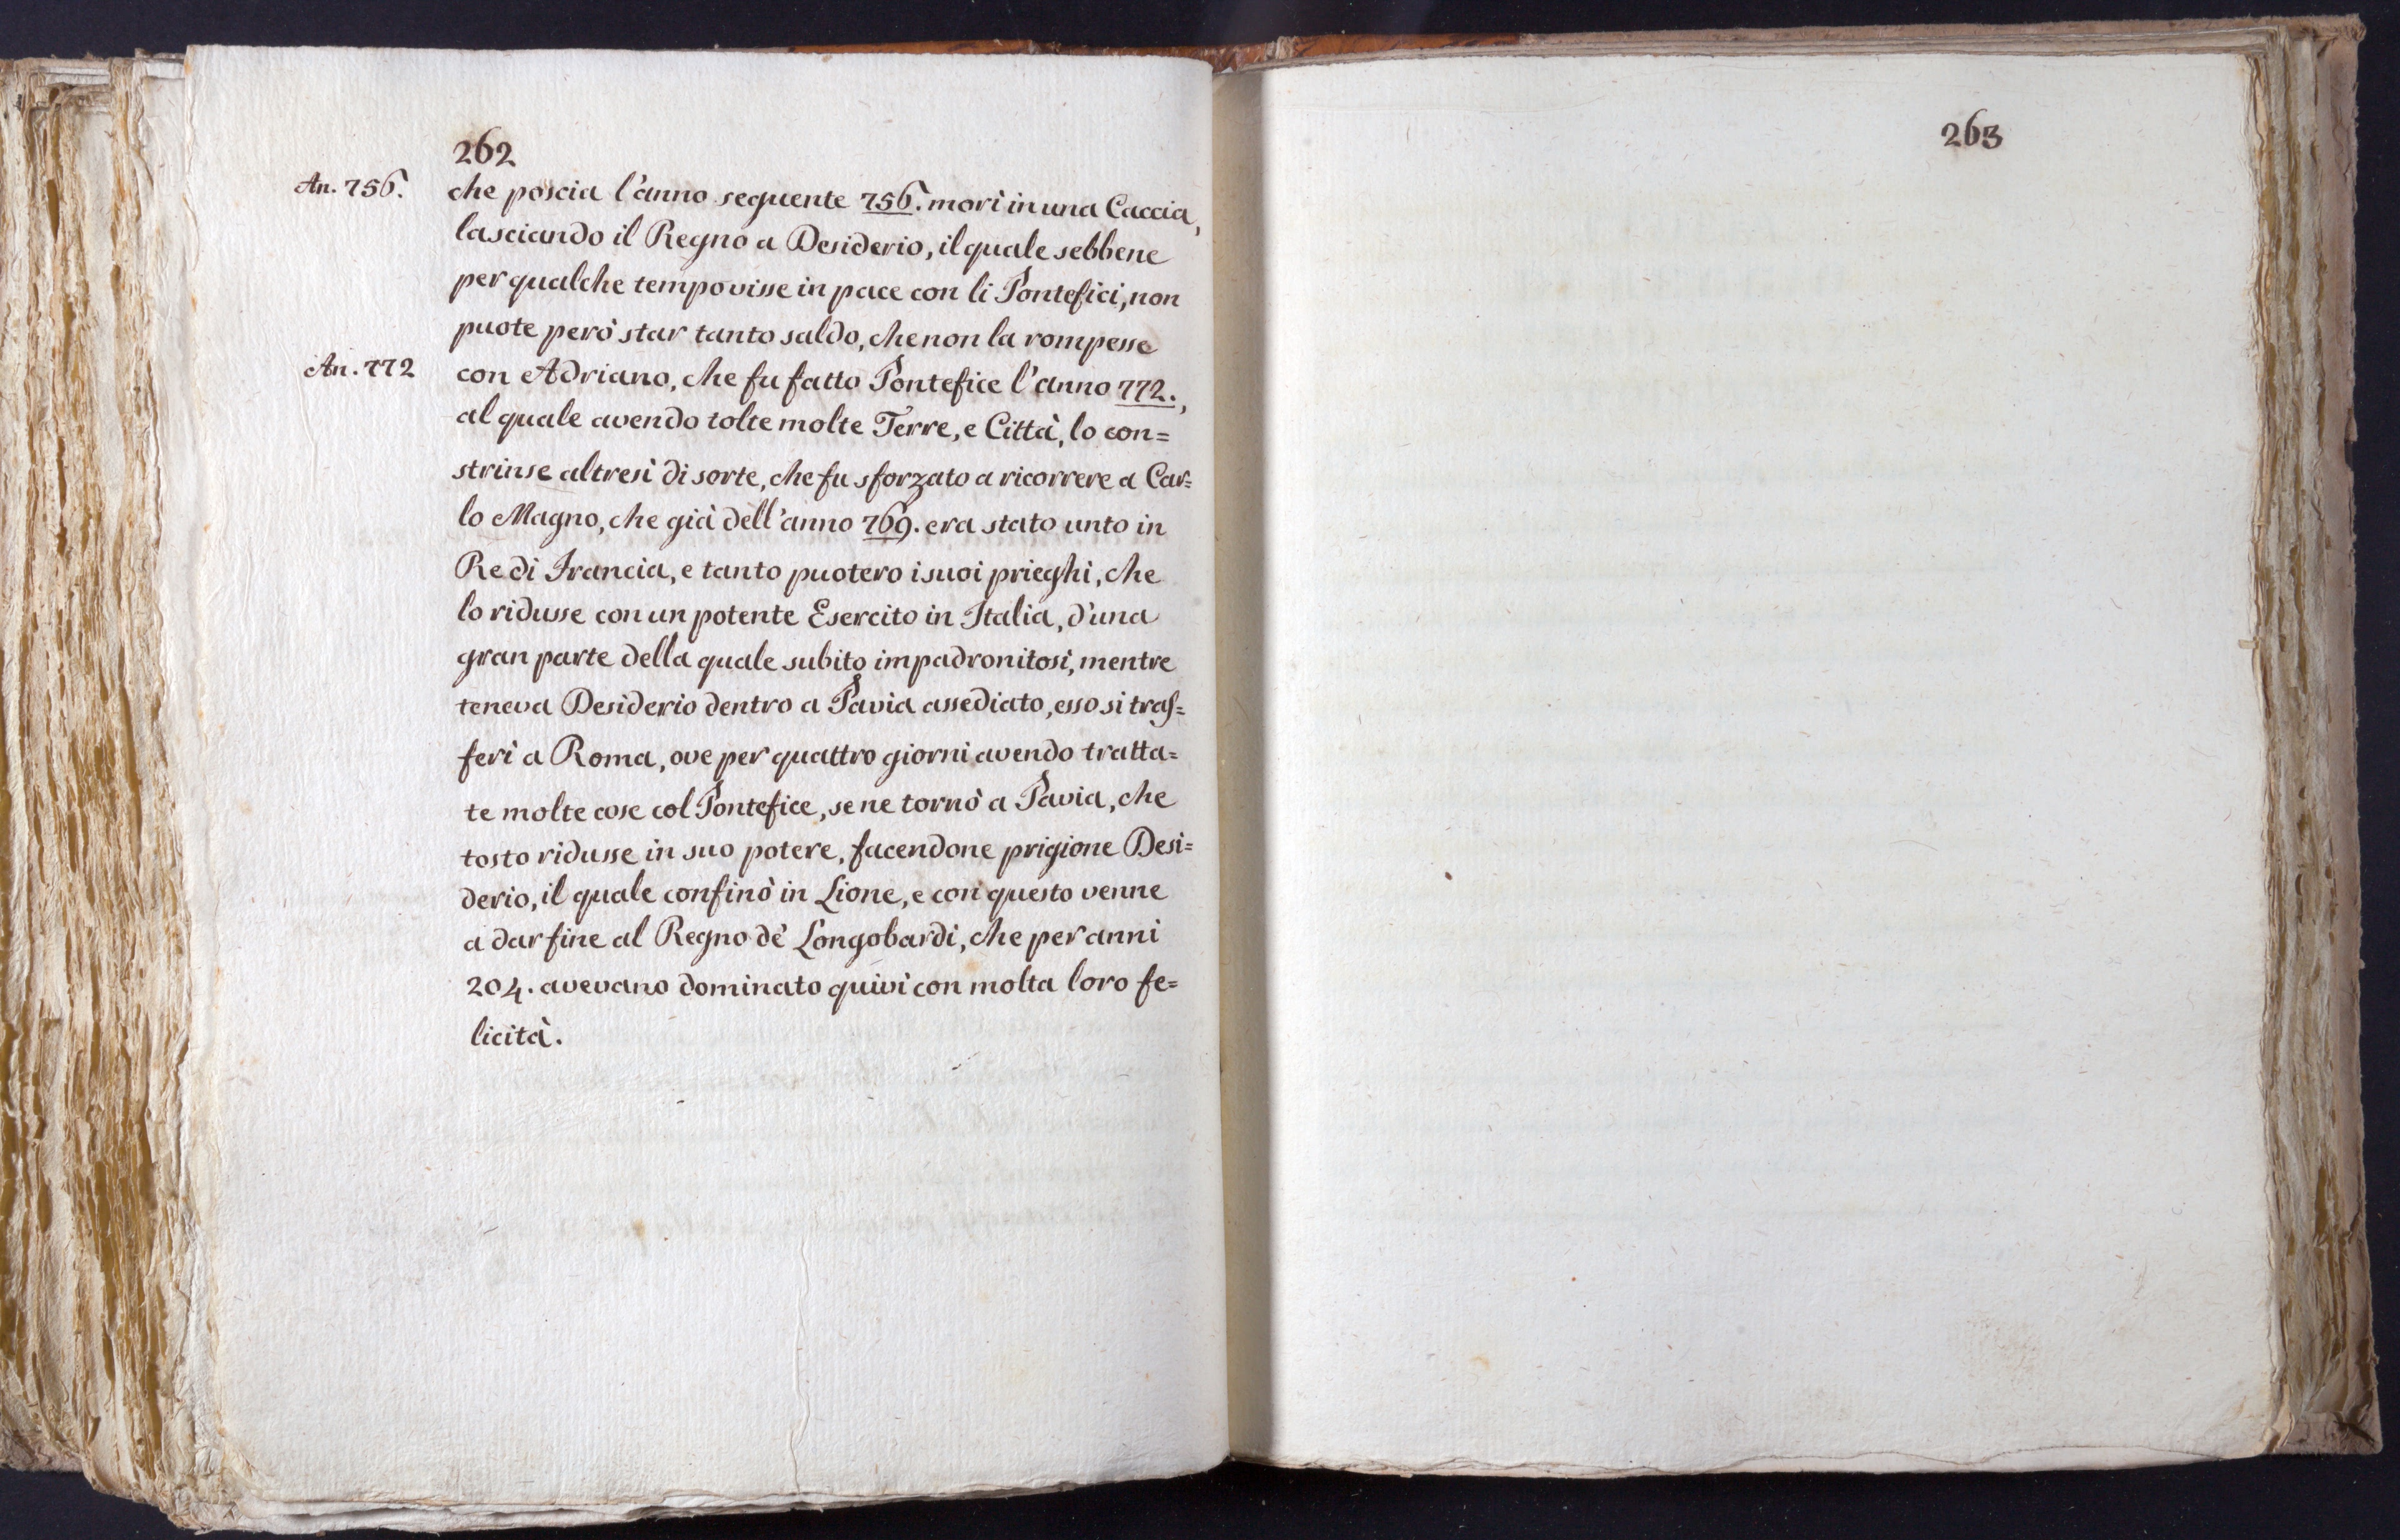 262
An. 756.
che poscia l'anno seguente 756. morì in una Caccia,
lasciando il Regno a Desiderio, il quale sebbene
per qualche tempo visse in pace con li Pontefici, non
puote però star tanto saldo, che non la rompesse
An. 772
con Adriano, che fu fatto Pontefice l'anno 772.,
al quale avendo tolte molte Terre, e Città, lo con=
strinse altresì di sorte, che fu sforzato a ricorrere a Car=
lo Magno, che già dell'anno 769. era stato unto in
Re di Francia, e tanto puotero i suoi prieghi, che
lo ridusse con un potente Esercito in Italia, d'una
gran parte della quale subito impadronitosi, mentre
teneva Desiderio dentro a Pavia assediato, esso si traſ=
ferì a Roma, ove per quattro giorni avendo tratta=
te molte cose col Pontefice, se ne tornò a Pavia, che
tosto ridusse in suo potere, facendone prigione Desi=
derio, il quale confinò in Lione, e con questo venne
a dar fine al Regno de' Longobardi, che per anni
204. avevano dominato quivi con molta loro fe=
licità.
263